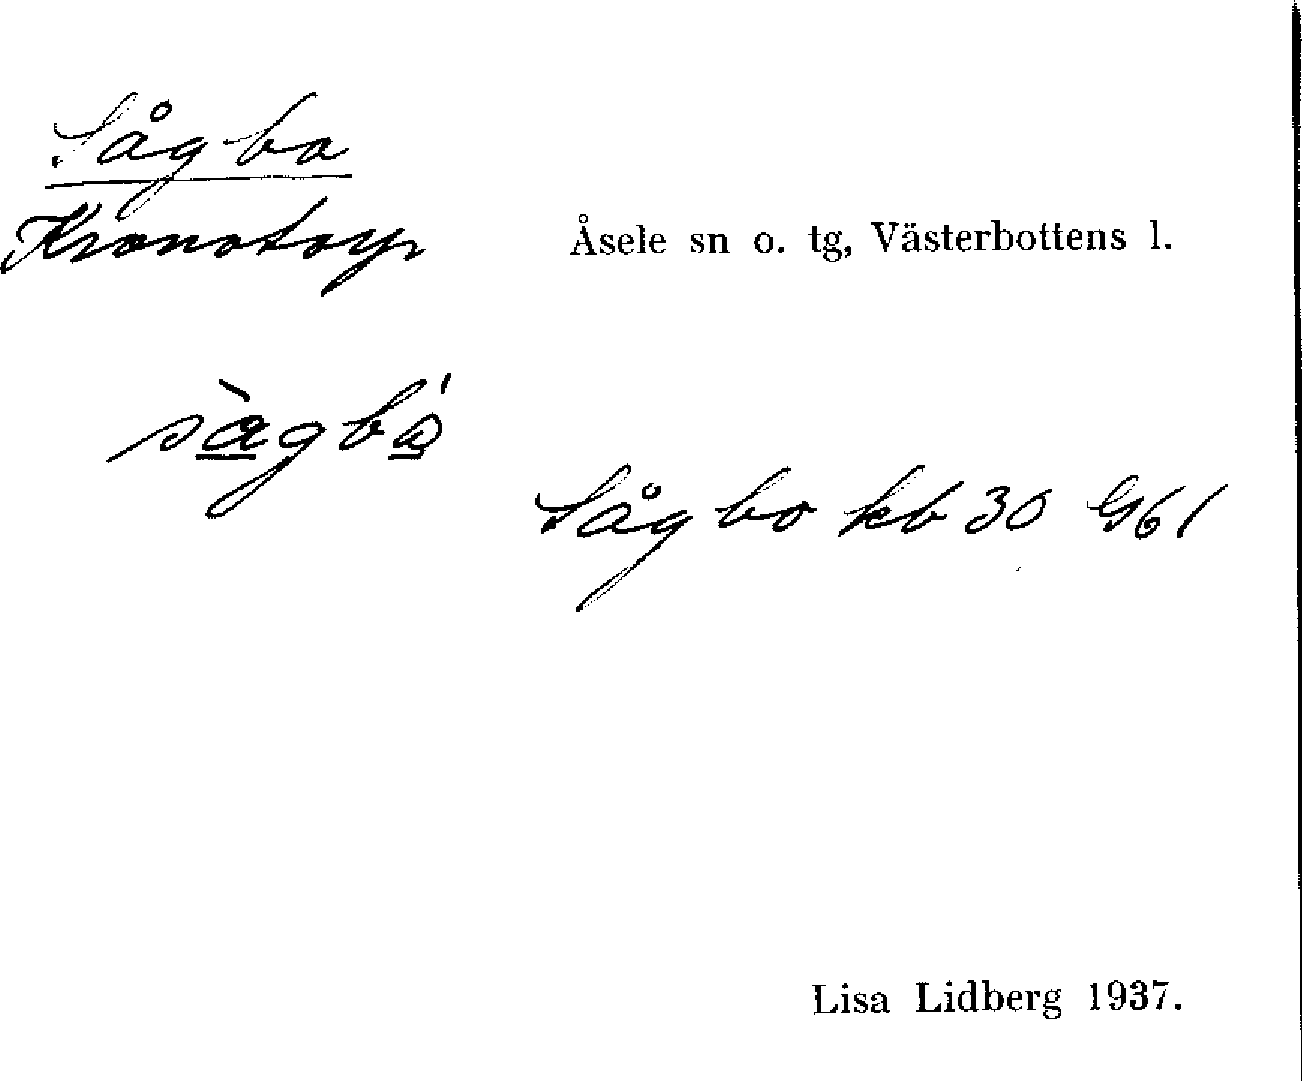 Sågbo
Kronotorp
Åsele sn o. tg, Västerbottens l.
sàgbá
Sågbo kb 30 G61
Lisa Lidberg 1937.